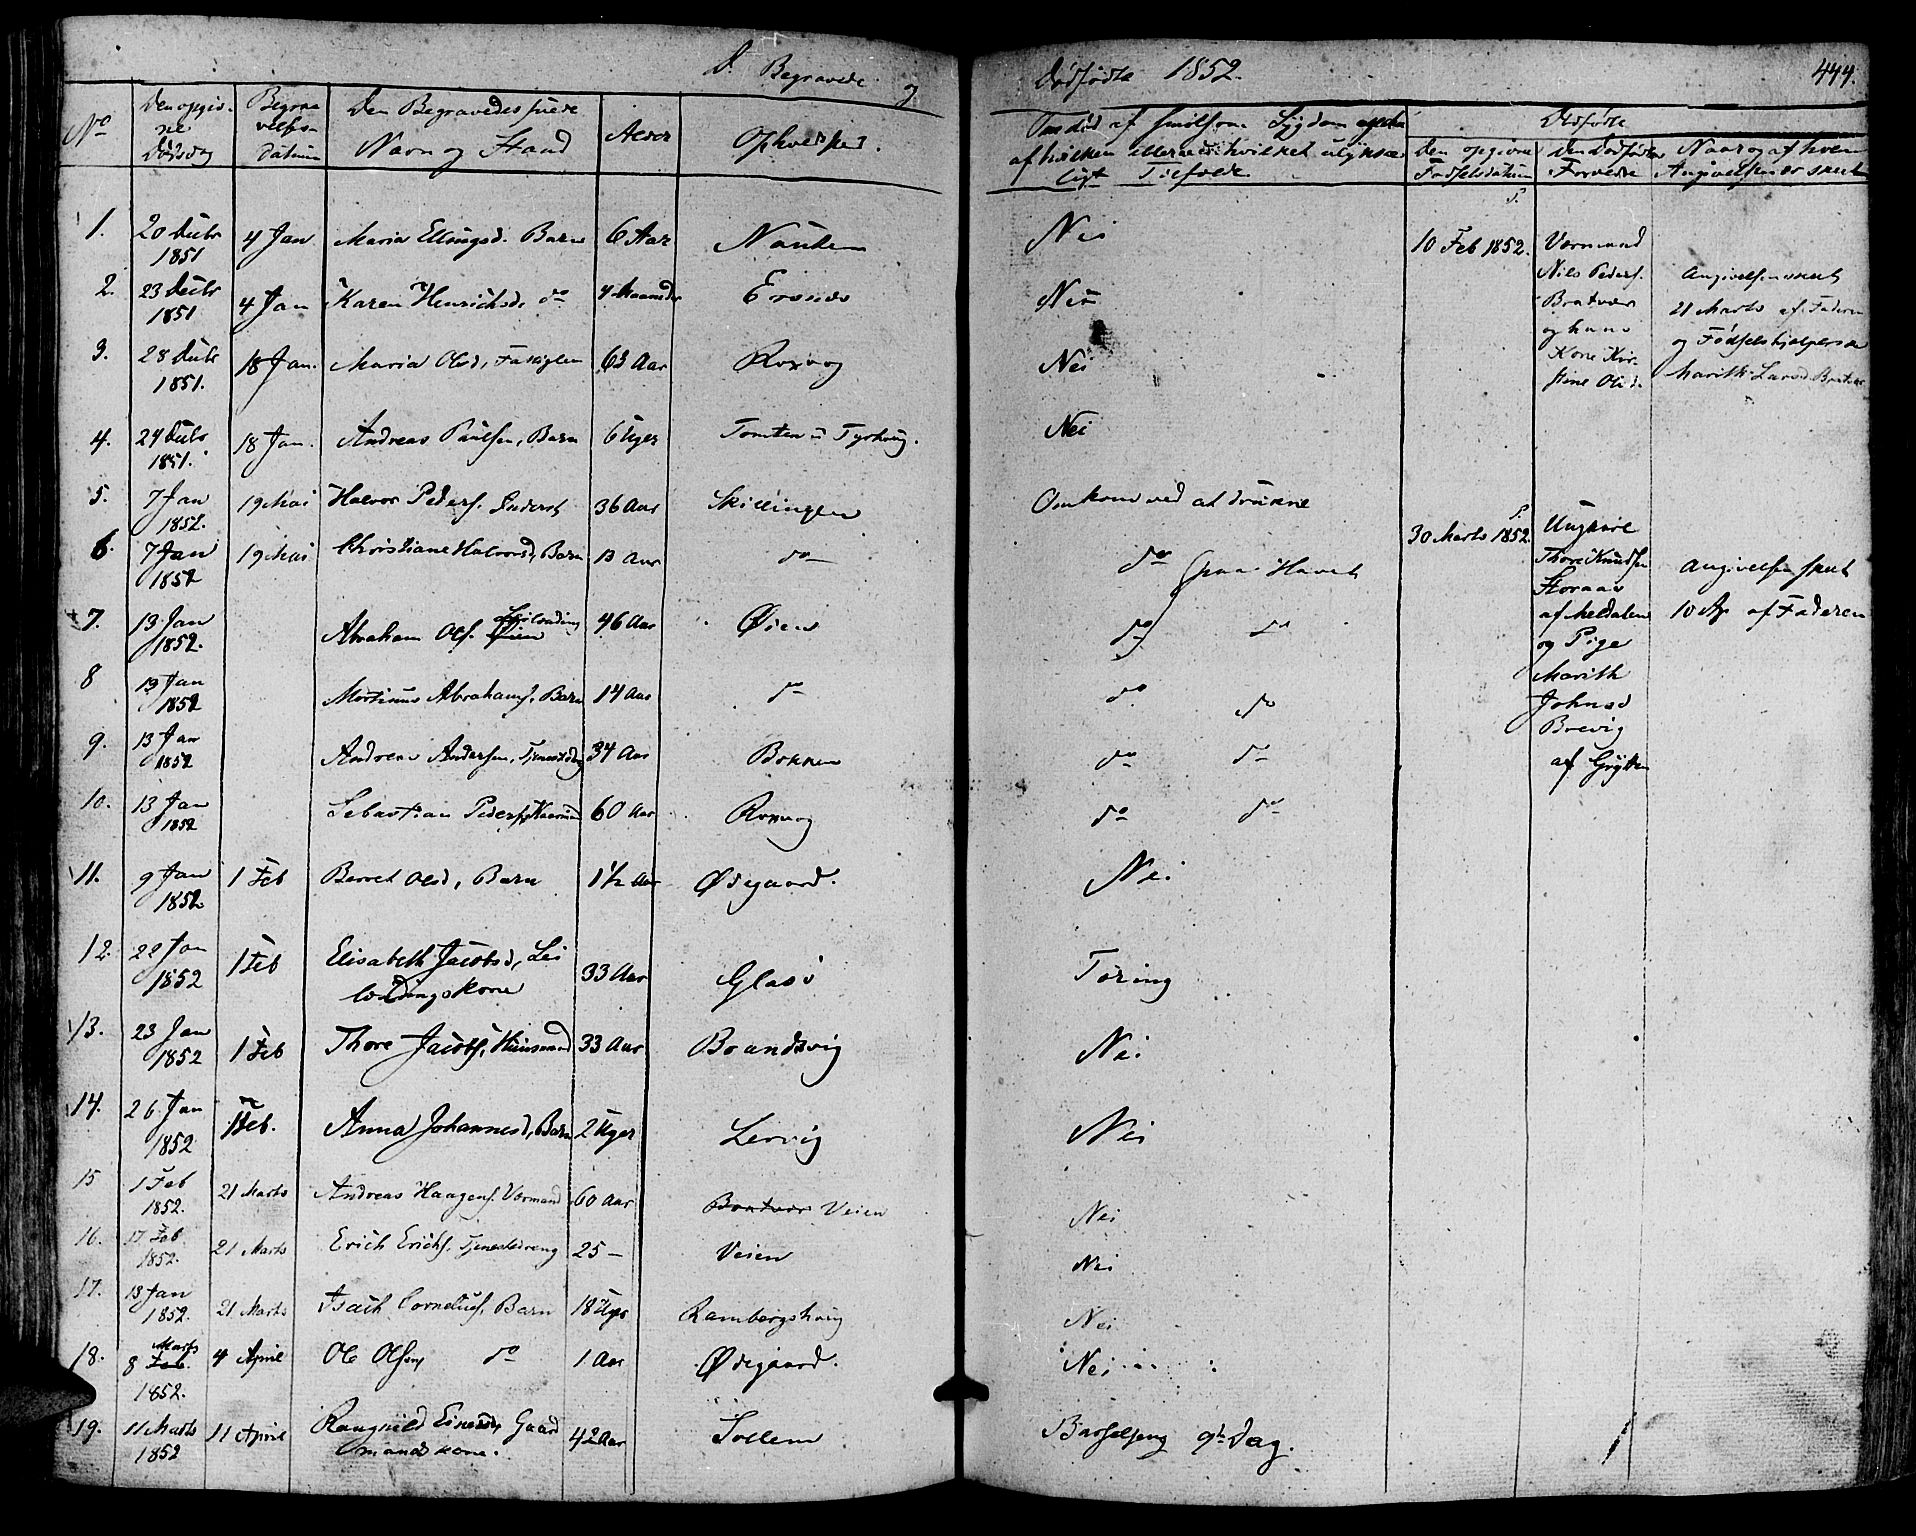 D. Begravede og
Dødfødte 1852.
444.
No
Den opgivne Dødsdag
Begravelses-Datum
Den Begravedes fulde Navn og Stand
Alder
Opholdssted.
Om død af smitsom Sygdom
af hvilken eller ved hvilket ulykkeligt Tilfælde
Dødfødte
Den opgivne Fødselsdatum
Den Dødfødtes Forældre
Naar og af hvem Angivelsen er skeet
1. 20 Decbr 1851 4 Jan Maria Ellingsd. Barn 6 Aar Nei
2. 23 Decbr 1851 4 Jan Karen Henrichsd. do 4 Maaneder Nei
3. 28 Decbr 1851. 18 Jan. Maria Olsd., 63 Aar Roxvog Nei
4. 24 Decbr 1851. 18 Jan. Andreas Paulsen, Barn 6 Uger Tomten u Tyrhoug. Nei
5. 7 Jan 1852. 19 Mai Halvor Peders. Inderst 36 Aar Skillingen Omkom ved at drukne
6. 7 Jan 1852 19 Mai Christiane Halvorsd, Barn 13 Aar do do paa Havet
7. 13 Jan 1852. Abraham Ols. Leilænding 46 Aar Øien do do
8 13 Jan 1852 Mortinus Abrahams. Barn 14 Aar do do do
9. 13 Jan 1852 Andreas Andersen, Tjenestedreng 34 Aar Bokken do do
10. 13 Jan 1852 Sebastian Peders, Kaarmand 60 Aar Roxvog do do
11. 9 Jan 1852 1 Feb Berret Olsd, Barn 1½ Aar Ødegaard. Nei
12. 22 Jan 1852 1 Feb Elisabeth Jacobsd, Leilændingskone 33 Aar Glasø Tæring
13. 23 Jan 1852 1 Feb Thore Jacobs, Huusmand 33 Aar Brandsvig Nei
14. 26 Jan 1852 1 Feb. Anna Johannesd, Barn 2 Uger Lervig Nei
15 1 Feb 1852. 21 Marts Andreas Haagens. Vormand 60 Aar Bratvær Veien Nei
16. 17 Feb 1852. 21 Marts Erich Erichs. Tjenestedreng 25 – Veien Nei
17. 13 Jan 1852. 21 Marts Isach Cornelius. Barn 18 Ugr Rambergshoug Nei
18. 8 Feb. Marts 1852. 4 April Ole Olsen do 1 Aar Ødegaard. Nei
19. 11 Marts 1852 11 April Rangnild Einersd, Gaardmandskone. 42 Aar Sollem Barselseng 9de Dag.
10 Feb 1852.
Vormand
Nils Peders.
Bratvær
og hans
Kone Kirstine Olsd.
Angivelsen skeet
21 Marts af Faderen
og Fødselshjelperske
Marith Larsd Bratvær
30 Marts 1852.
Ungkarl
Thore Knudsen
Storaas
af Meldalen
og Pige
Marith
Johnsd
Brevig
af Grytten
Angivelsen skeet
10 Ap af Faderen